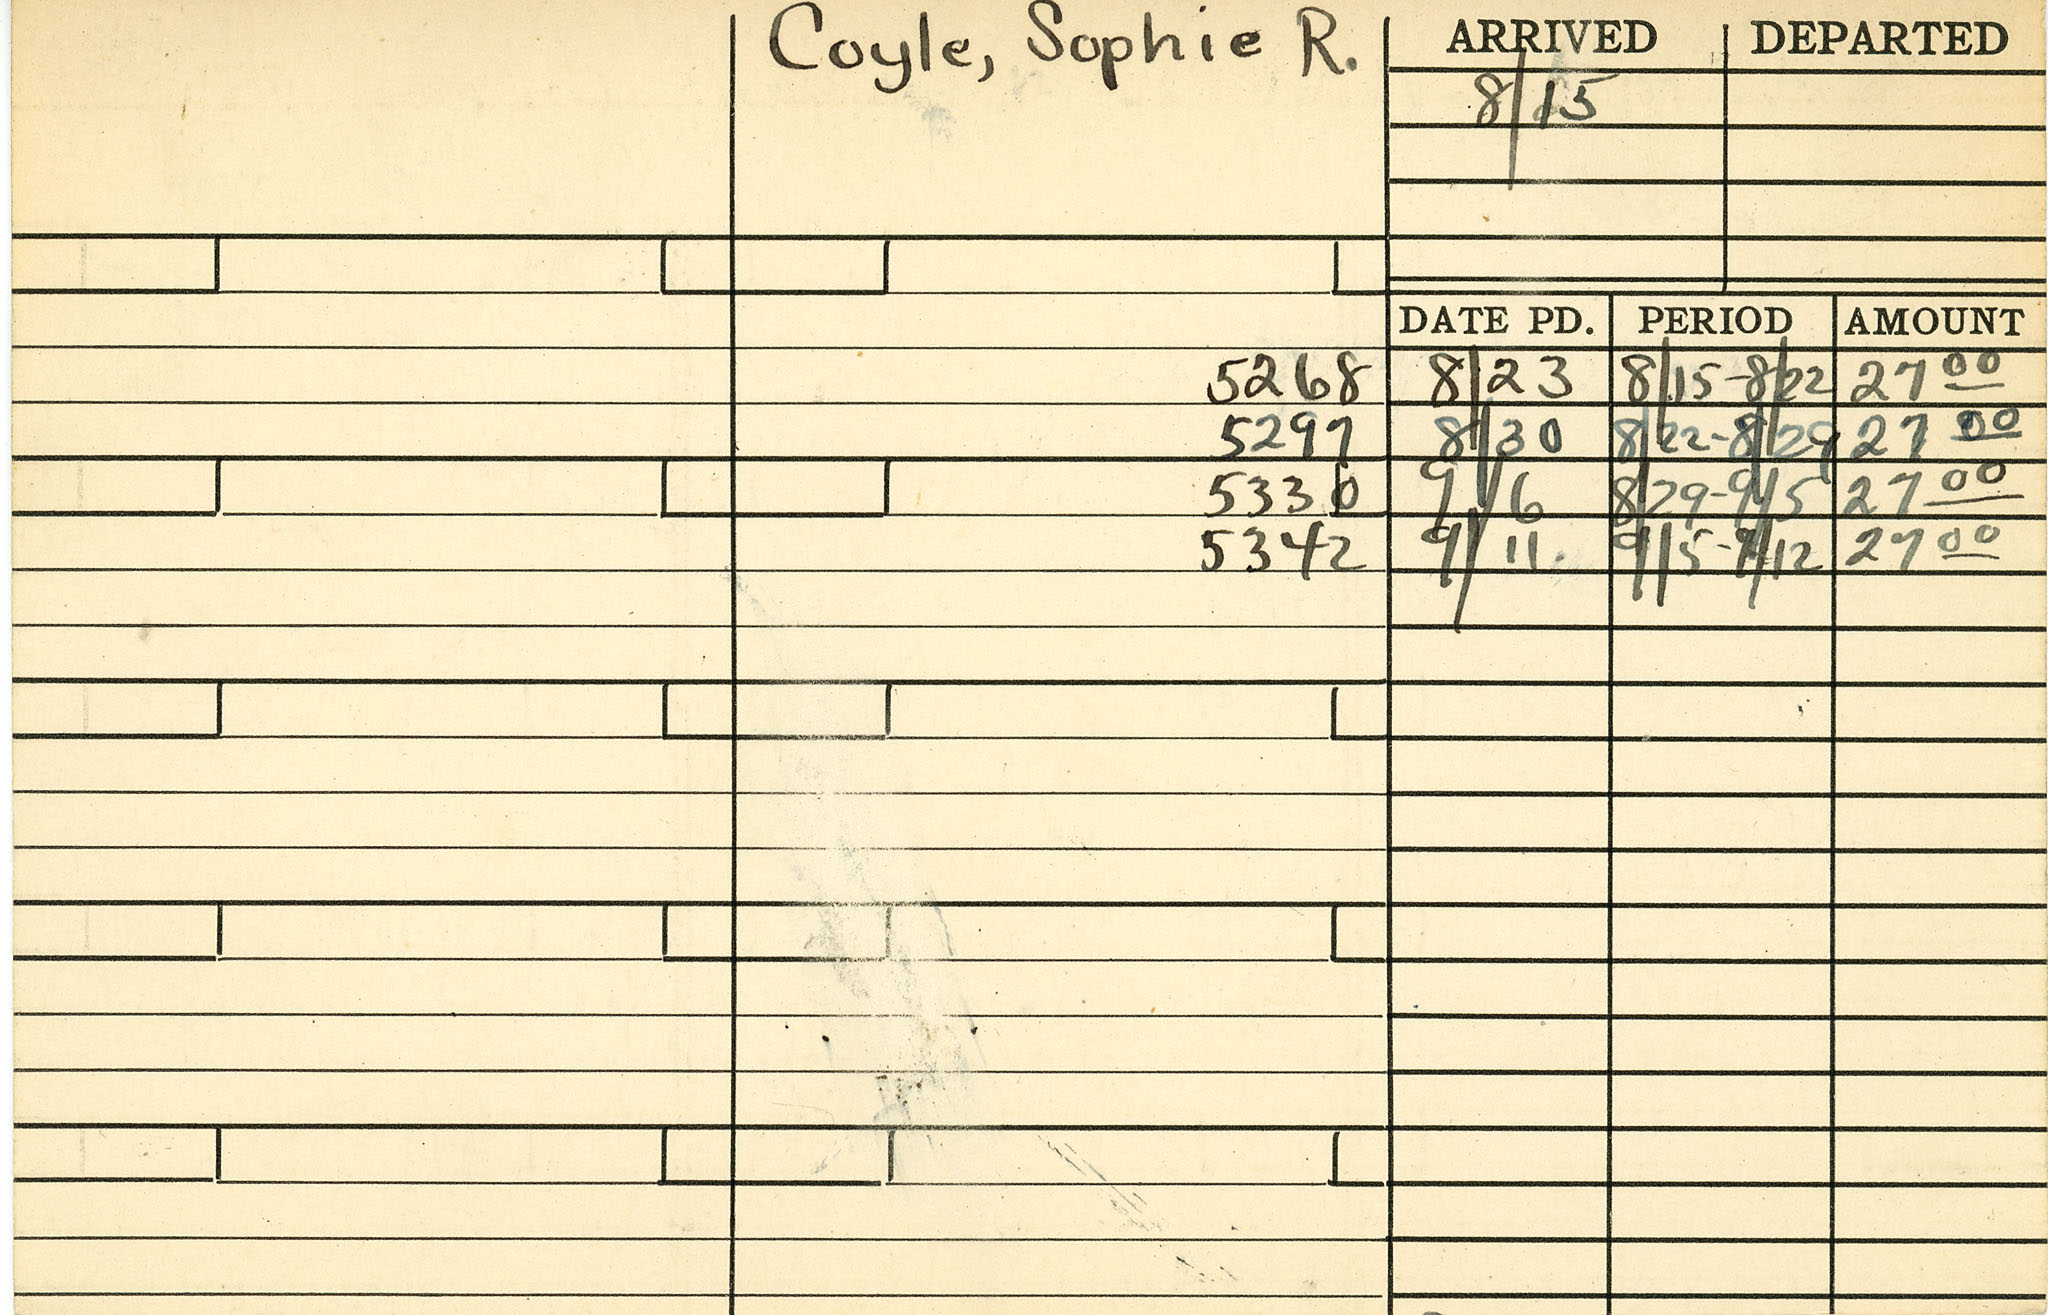 Coyle, Sophie R.
ARRIVED DEPARTED
8/15
DATE PD. PERIOD AMOUNT
5268 8/23 8/15-8/22 27 00
5297 8/30 8/22-8/29 27 00
5330 9/6 8/29-9/5 27 00
5342 9/11. 9/5-9/12 27 00